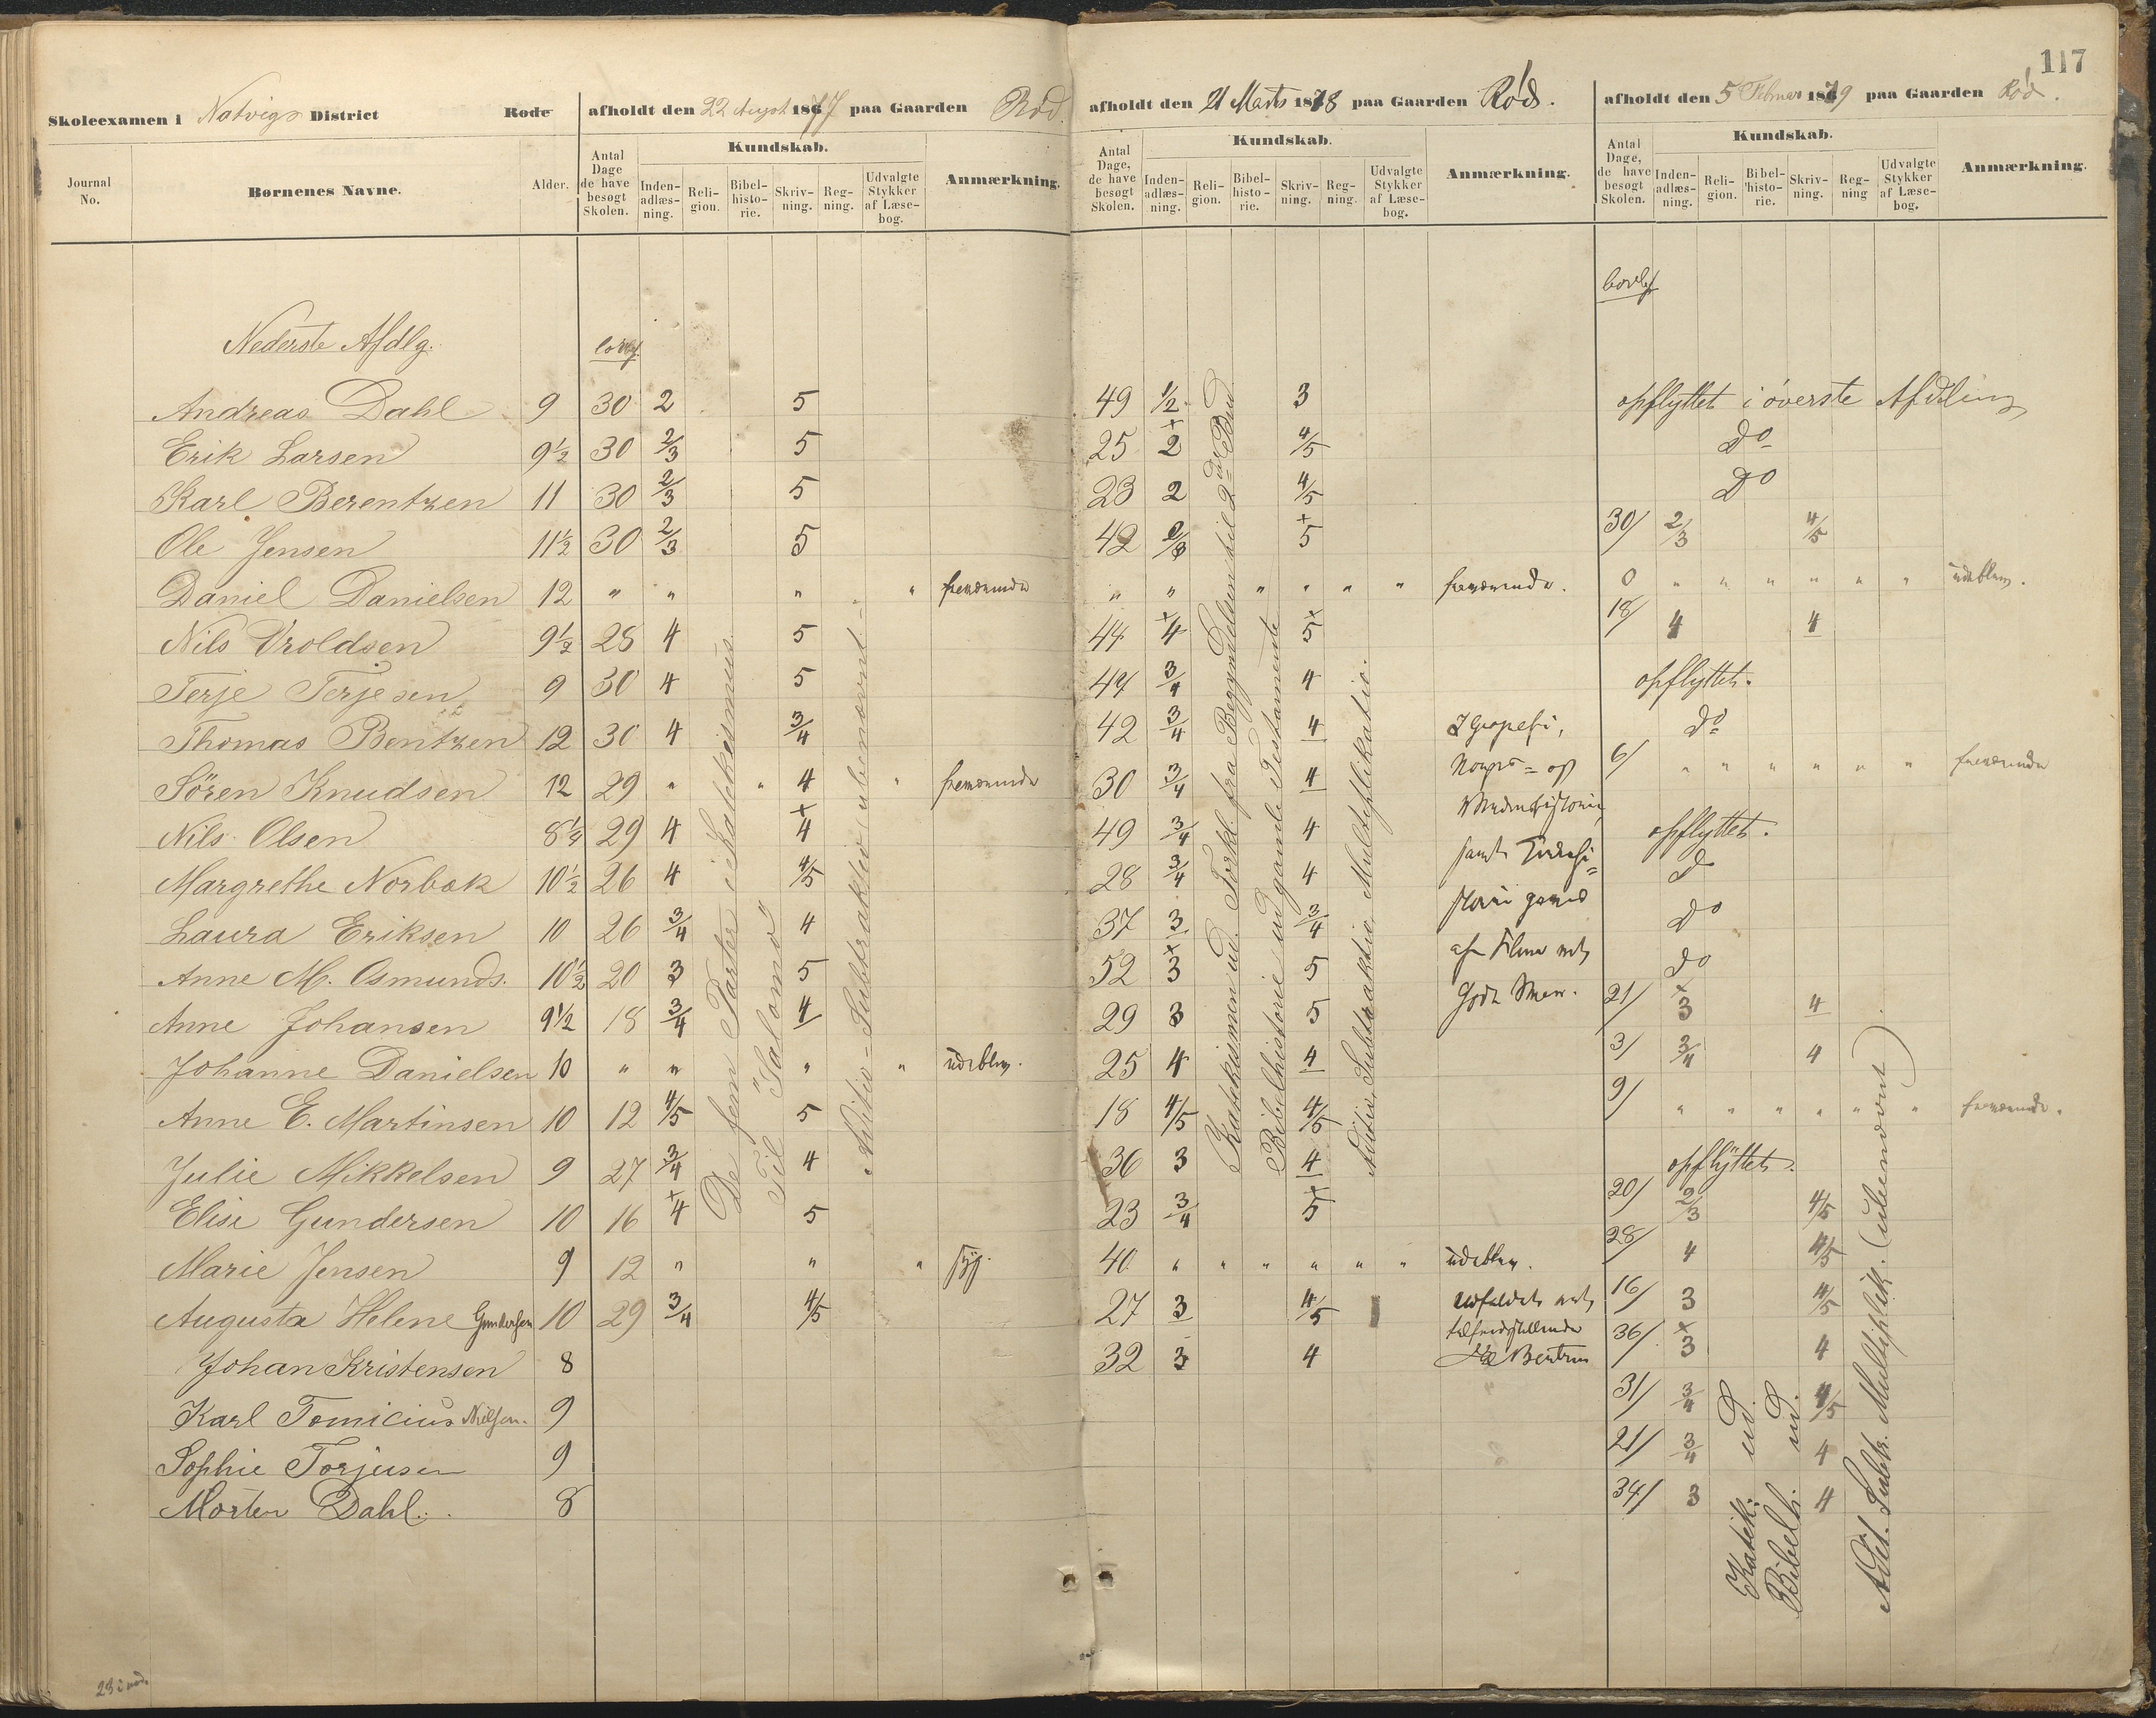 117
Skoleexamen i Natvigs District Rode afholdt den 22 August 1877 paa Gaarden Rød. afholdt den 21 Marts 1878 paa Gaarden Rød. afholdt den 5 Februar 1879 paa Gaarden Rød.
Journal No. Børnenes Navne. Alder. Antal Dage de have besøgt Skolen. Kundskab. Inden-adlæs-ning. Reli-gion. Bibel-histo-rie. Skriv-ning. Reg-ning. Udvalgte Stykker af Læse-bog. Anmærkning.
Antal Dage, de have besøgt Skolen. Kundskab. Inden-adlæs-ning. Reli-gion. Bibel-histo-rie. Skriv-ning. Reg-ning. Udvalgte Stykker af Læse-bog. Anmærkning.
Antal Dage, de have besøgt Skolen. Kundskab. Inden-adlæs-ning. Reli-gion. Bibel-histo-rie. Skriv-ning. Reg-ning Udvalgte Stykker af Læse-bog. Anmærkning.
Nederste Afdlg.
Andreas Dahl 9 30 2 5 49 1/2 3 opflyttet i øverste Afdeling
Erik Larsen 9½ 30 2/3 5 25 +2 4/5 do
Karl Berentzen 11 30 2/3 5 23 2 4/5 do
Ole Jensen 11½ 30 2/3 5 42 2/3 +5 30/ 2/3 4/5
Daniel Danielsen 12 " " " " " fraværende " " " " " " fraværende. 0 " " " " " " udeblev.
Nils Vroldsen 9½ 28 4 5 44 +4 +5 18/ 4 4
Terje Terjesen 9 30 4 5 44 3/4 4 opflyttet.
Thomas Bentzen 12 30 4 3/4 42 3/4 4 do
Sören Knudsen 12 29 " " 4 " fraværende 30 3/4 4 6/ " " " " " " fraværende
Nils Olsen 8¼ 29 4 +4 49 3/4 4 opflyttet.
Margrethe Norbæk 10½ 26 4 4/5 28 3/4 4 do
Laura Eriksen 10 26 3/4 4 37 3 3/4 do
Anne M. Osmunds. 10½ 20 3 5 52 +3 5 do
Anne Johansen 9½ 18 3/4 4 29 3 5 21/ +3 4
Johanne Danielsen 10 " " " " udeblev. 25 4 4 3/ 3/4 4
Anne E. Martinsen 10 12 4/5 5 18 4/5 4/5 9/ " " " " " " fraværende.
Julie Mikkelsen 9 27 3/4 4 36 3 4 opflyttet.
Elise Gundersen 10 16 +4 5 23 3/4 +5 20/ 2/3 4/5
Marie Jensen 9 12 " " " syg. 40 " " " " " " udeblev. 28/ 4 4/5
Augusta Helene Gundersen 10 29 3/4 4/5 27 3 4/5 Udfaldet 16/ 3 4/5
Johan Kristensen 8 32 3 4 tilfredsstillende 36/ +3 4
Karl Tomicius Nielsen. 9 31/ 3/4 4/5
Sophie Torjusen 9 21/ 3/4 4
Morten Dahl. 8 34/ 3 4
De fem Parter i Katekismus.
Til "Salomo"
Aditio - Subtraktio ubenævnt
Katekismen ud. Forkl. fra Begyndelsen til 2det Bud
Bibelhistorie ud gamle Testamente
Aditio, Subtraktio, Multiplikatio.
Katek. ud.
Bibelh. ud.
Adit. Subtr. Multiplik. (ubenævnt)